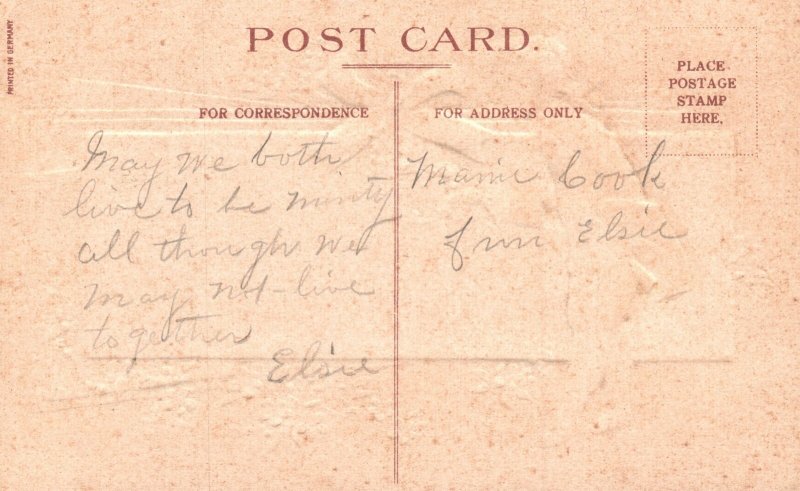 PRINTED IN GERMANY
POST CARD.
FOR CORRESPONDENCE
FOR ADDRESS ONLY
PLACE
POSTAGE
STAMP
HERE.
May we both
live to be ninty
all though we
may not live
together
Elsie
Mamie Cook
from Elsie